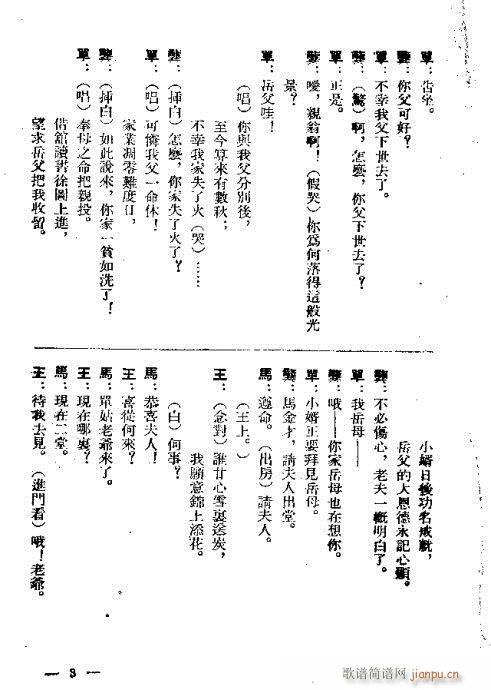 單：告坐。
龔：你父可好？
單：不幸我父下世去了。
龔：（驚）啊，怎麼，你父下世去了？
單：正是。
龔：噯，親翁啊！（假哭）你爲何落得這般光
景？
單：岳父哇！
（唱）你與我父分別後，
至今算來有數秋；
不幸我家失了火（哭）……
龔：（挿白）怎麼，你家失了火了？
單：（唱）可憐我父一命休！
家業凋零難度日，
龔：（挿白）如此說來，你家一貧如洗了！
單：（唱）奉母之命把親投。
借舘讀書徐圖上進，
望求岳父把我收留。
小婿日後功名成就，
岳父的大恩德永記心頭。
龔：不必傷心，老夫一概明白了。
單：我岳母——
龔：哦——你家岳母也在想你。
單：小婿正要拜見岳母。
龔：馬金才，請夫人出堂。
馬：遵命。（出房）請夫人。
（王上。）
王：（念對）誰甘心雪裏送炭，
我願意錦上添花。
（白）何事？
馬：恭喜夫人！
王：喜從何來？
馬：單姑老爺來了。
王：現在哪裏？
馬：現在二堂。
王：待我去見。（進門看）哦！老爺。
— 3 —
歌谱简谱网
jianpu.cn